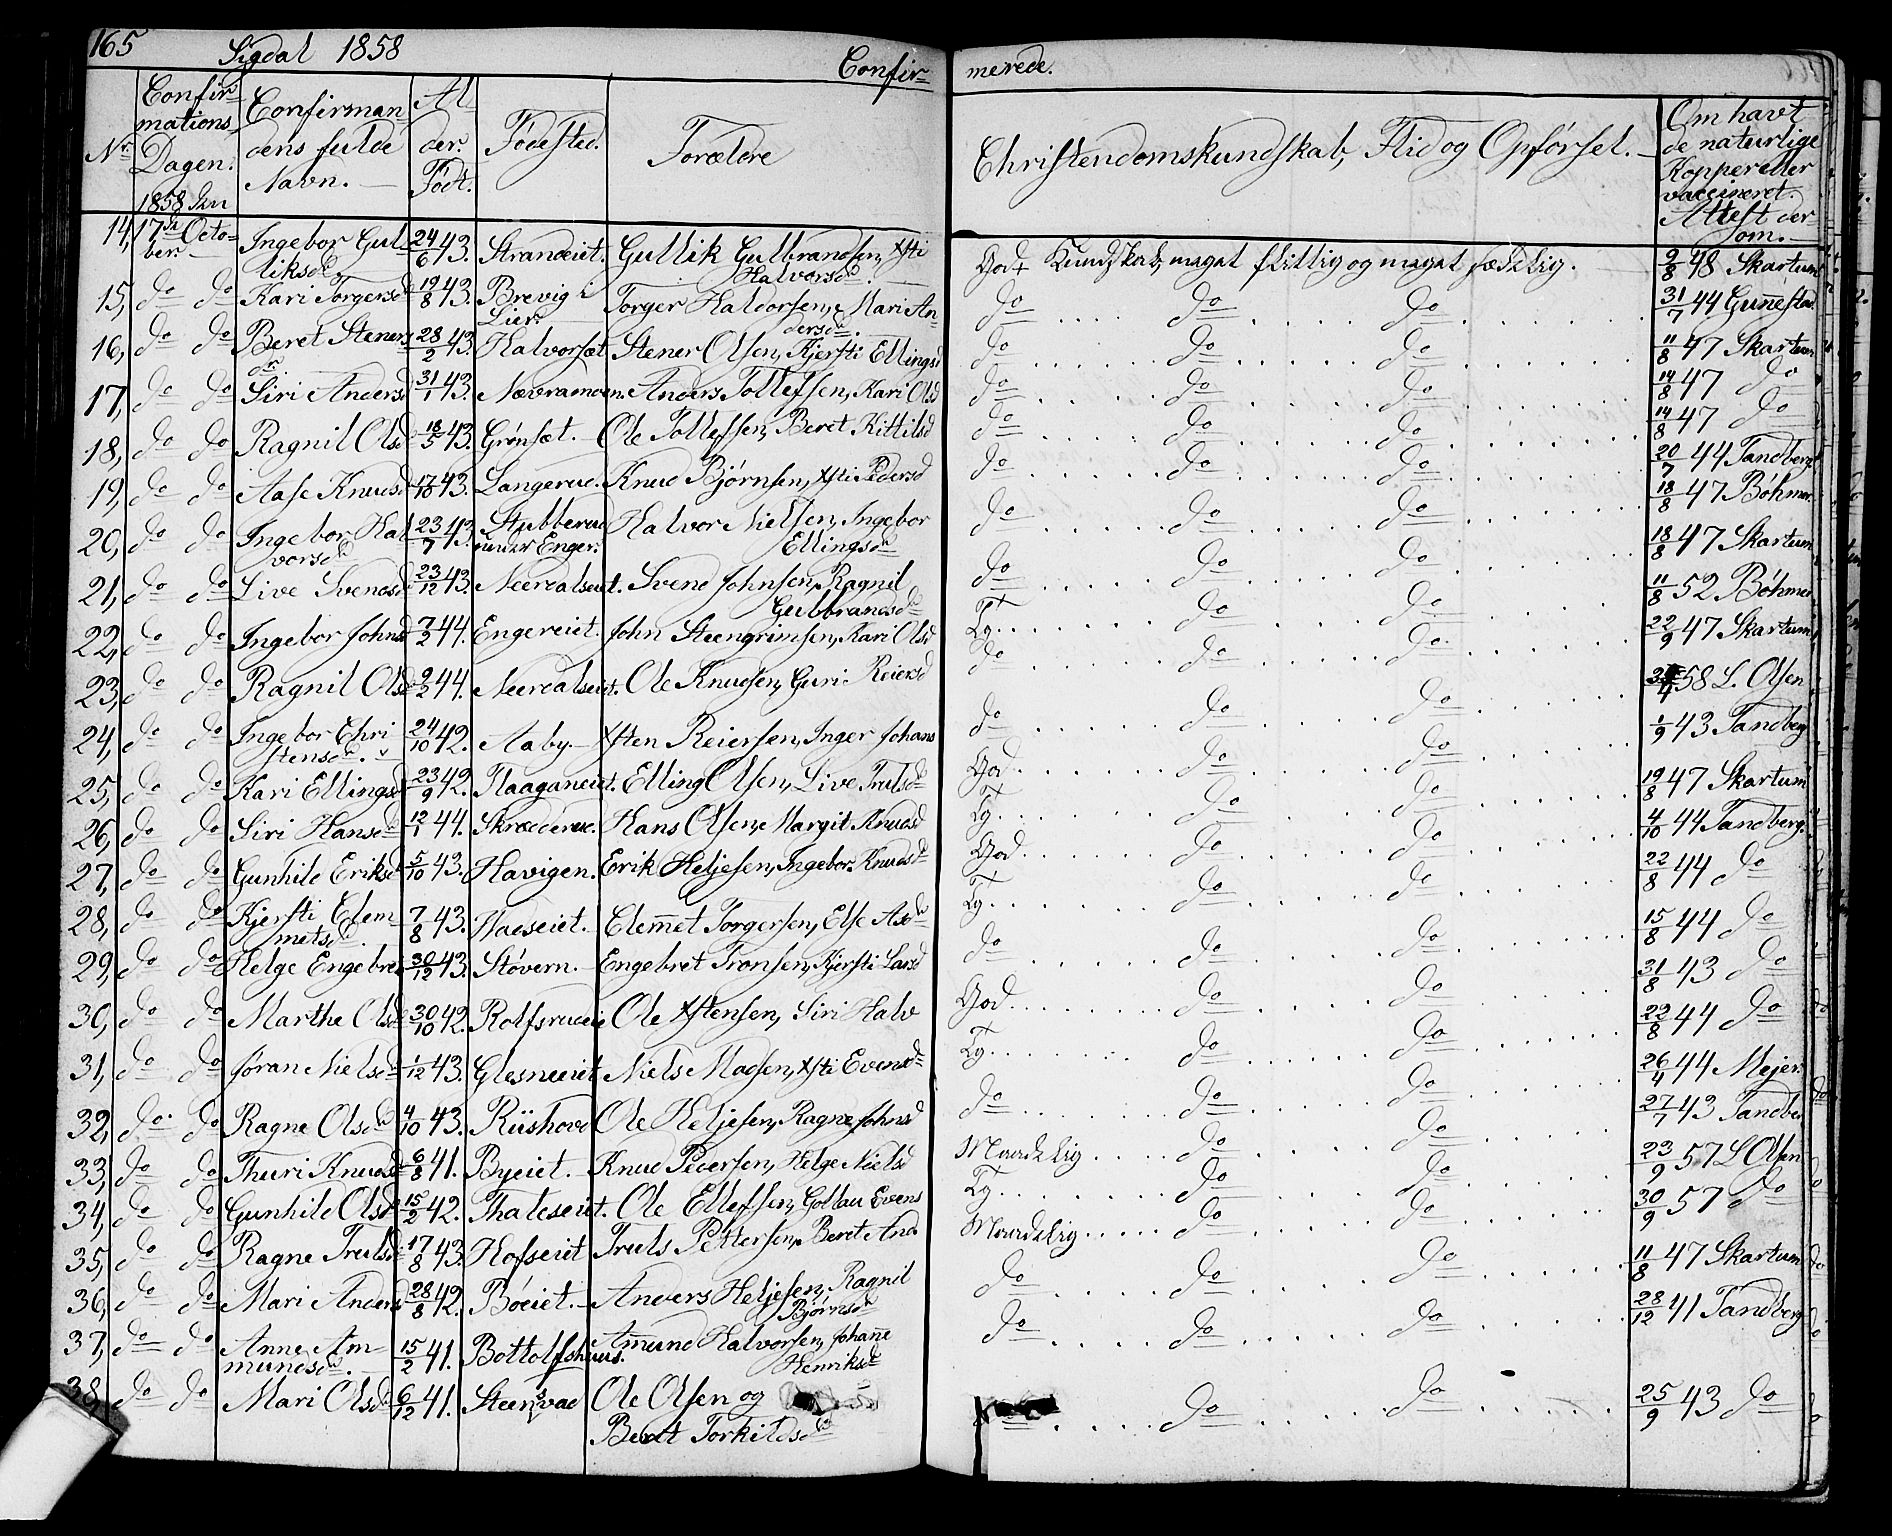 165 Sigdal 1858 Confir-
merede.
Nr. Confir-mations Dagen. 1858 Confirman dens fulde Navn. Al der. Født. Fødested. Forældre Christendomskundskab, Flid og Opførsel. Om havt de naturlige Kopper eller vaccineret. Attest derom.
14, 17de Octo-ber. Ingebor Gul-liksd. 24/6 43. Strandeiet. Gullik Gulbrandsen, Xsti Halvorsd. God Kundskab, meget flittig og meget sædelig. 9/8 48 Skartum
15, do do Kari Torgersd 19/8 43. Brevig i Lier. Torger Halvorsen, Mari An-dersd. do do do 31/7 44 Gunnestad
16, do do Beret Steners dr. 28/2 43. Halvorset. Stener Olsen, Kjersti Ellingsd do do do 11/8 47 Skartum
17, do do Siri Andersd 31/1 43. Næveramoen. Anders Tollefsen, Kari Olsd do do do 14/8 47 do
18, do do Ragnil Olsd 18/5 43. Grønset. Ole Tollefsen, Beret Kittilsd do do do 14/8 47 do
19, do do Aase Knudsd 17/10 43. Langerud. Knud Bjørnsen, Xsti Pedersd do do do 20/7 44 Tandberg
20, do do Ingebor Hal vorsd 23/7 43. Stubberud under Enger. Halvor Nielsen, Ingebor Ellingsd do do do 18/8 47 Bøhmer
21, do do Live Svendsd 23/12 43. Neerdalseiet. Svend Johnsen, Ragnil Gulbrandsd do do do 18/8 47 Skartum
22, do do Ingebor Johnsd 7/2 44. Engereiet. John Steengrimsen, Kari Olsd Tg. do do 11/8 52 Bøhmer
23, do do Ragnil Olsd 9/2 44. Neerdalseiet. Ole Knudsen, Guri Reiersd do do do 22/9 47 Skartum
24, do do Ingebor Chri stensd. 24/10 42. Aaby. Xsten Reiersen, Inger Johans do do do 58 L. Olsen
25, do do Kari Ellingsd 23/9 42. Flaaganeiet. Elling Olsen, Live Trulsd God. do do 1/9 43 Tandberg
26, do do Siri Hansd 12/1 44. Skræderud. Hans Olsen, Margit Knudsd Tg. do do 19/8 47 Skartum
27, do do Gunhild Eriksd 5/10 43. Havigen. Erik Heljesen, Ingebor Knudsd God. do do 4/10 44 Tandberg
28, do do Kjersti Clem metsd. 7/8 43. Haaeseiet. Clemmet Torgersen, Else Asd Tg. do do 22/8 44 do
29, do do Helge Engebre 30/12 43. Støvern. Engebret Tronsen, Kjersti Larsd do do do 15/8 44 do
30, do do Marthe Olsd 30/10 42. Rolfsrudeie Ole Xstensen, Siri Halv God. do do 31/8 43 do
31, do do Jøran Nielsd 1/12 43. Glesneeiet Niels Madsen, Xsti Evensd Tg. do do 22/8 44 do
32, do do Ragne Olsd 4/10 43. Riishovd Ole Heljesen, Ragne Johnsd do do do 26/4 44 Mejer.
33, do do Thuri Knudsd 6/8 41. Byeiet. Knud Pedersen, Helge Nielsd Maadelig do do 27/7 43 Tandber
34, do do Gunhild Olsd 15/2 42. Thaleseiet. Ole Ellefsen, Gollau Evens Tg. do do 23/9 57 L Olsen
35, do do Ragne Trulsd 17/8 43. Hofseiet Truls Pettersen, Beret And Maadelig do do 30/9 57 do
36, do do Mari Anders 28/8 42. Bøeiet. Anders Heljesen, Ragnil Bjørnsd do do do 11/8 47 Skartum
37, do do Anne Am mundsd. 15/2 41. Bottolfshuus. Amund Halvorsen, Johanne Henriksd do do do 28/12 41 Tandberg
38, do do Mari Olsd. 6/12 41. Steensvad Ole Olsen og Beret Torkildsd do do 25/9 43 do